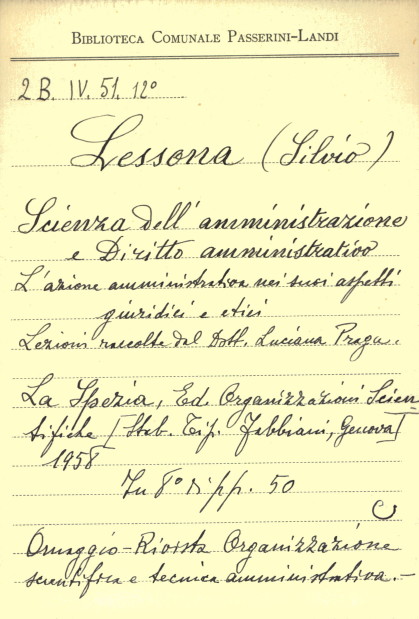 BIBLIOTECA COMUNALE PASSERINI-LANDI
2 B. IV. 51. 12°
Lessona (Silvio)
Scienza dell'amministrazione
e Diritto amministrativo
L'azione amministrativa nei suoi aspetti
giuridici e etici
Lezioni raccolte dal Dott. Luciana Praga.
La Spezia, Ed. Organizzazioni Scien-
tifiche [Stab. Tip. Fabbiani, Genova]
1958
In 8° di pp. 50
Omaggio-Rivista Organizzazione
scientifica e tecnica amministrativa.-